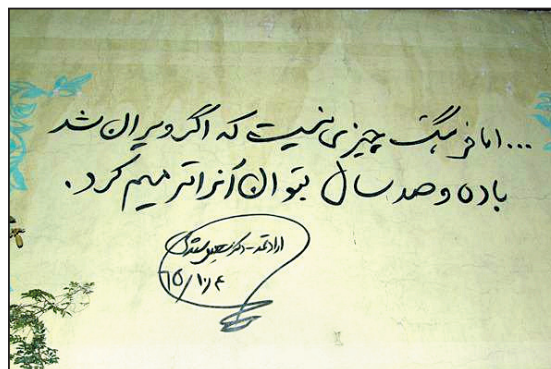 ...اما فرهنگ چیزی نیست که اگر ویران شد
باده و صد سال بتوان آنرا ترمیم کرد.
ارادتمند - دکتر
۶۵/۱۰/۴